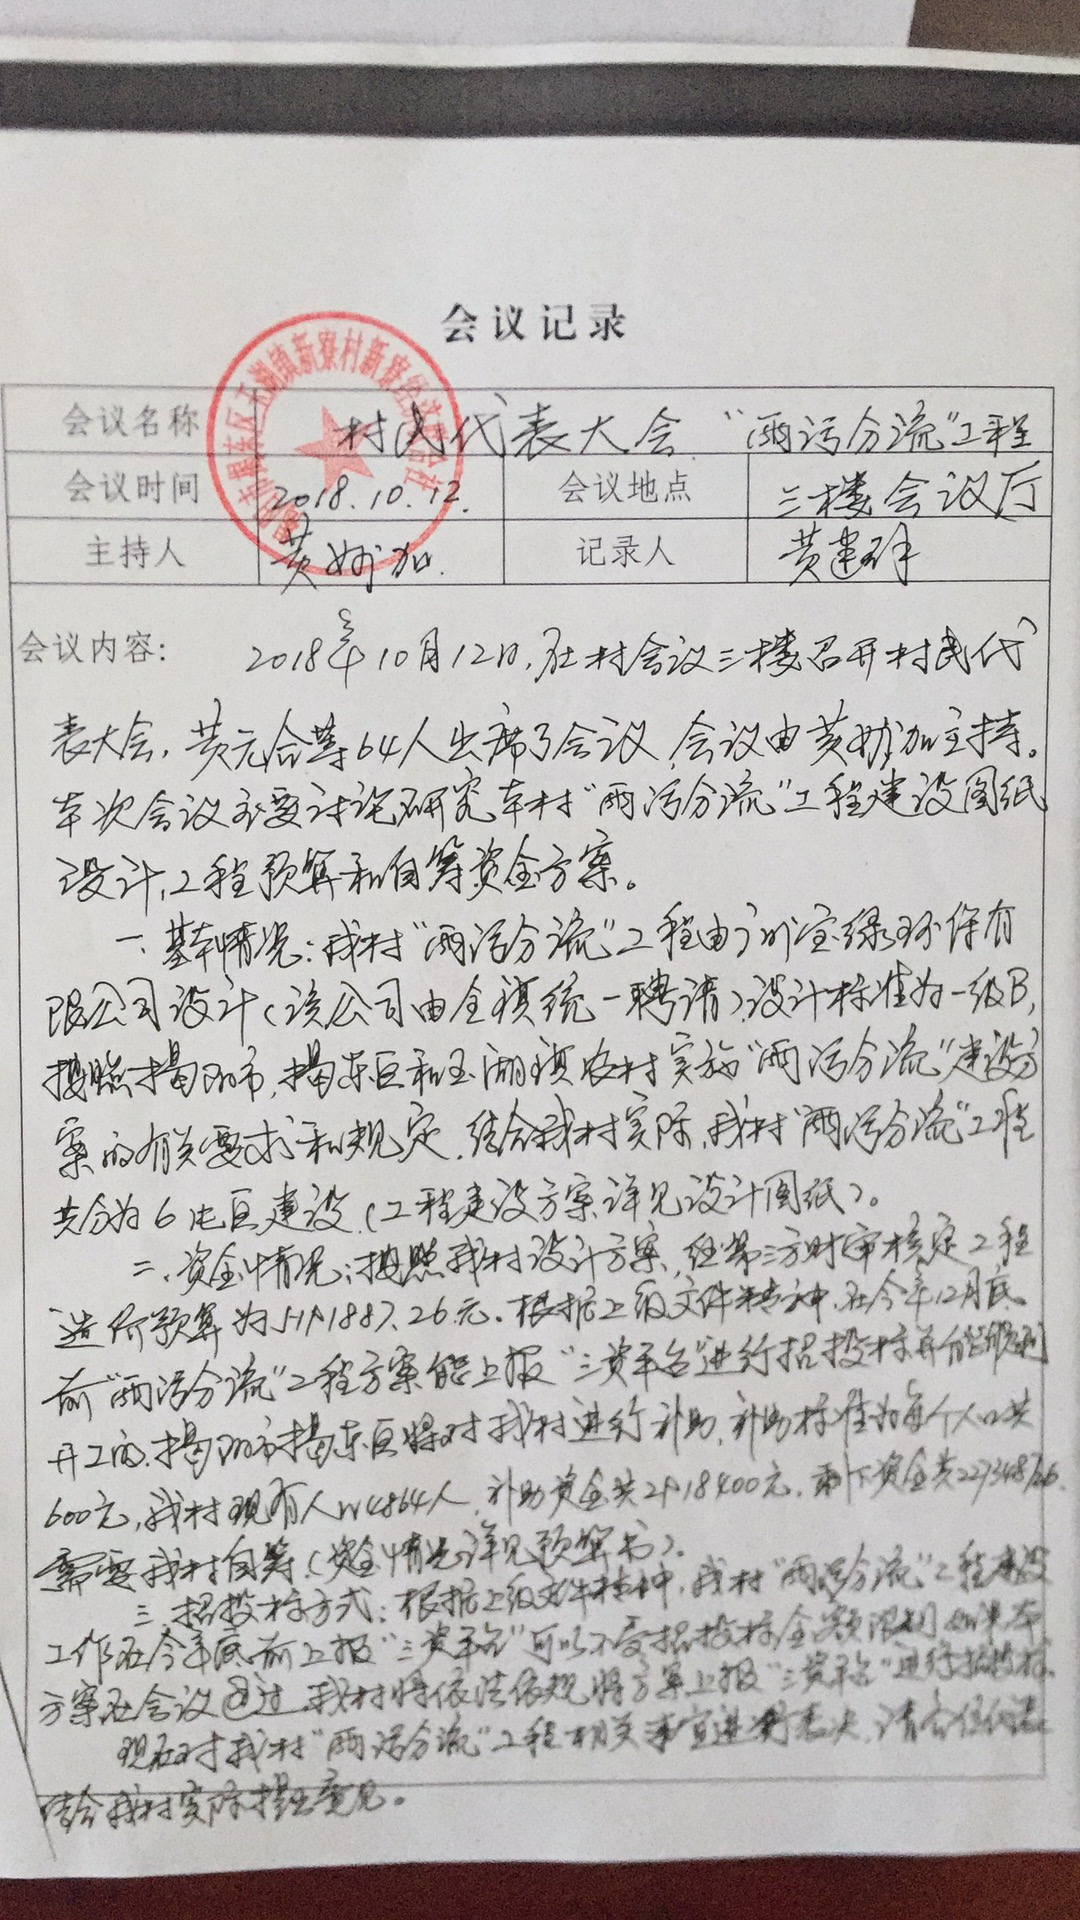 会议记录
会议名称 村民代表大会 “雨污分流”工程
会议时间 2018.10.12. 会议地点 三楼会议厅
主持人 黄 加. 记录人 黄建
会议内容: 2018年10月12日,在村会议三楼召开村民代
表大会,黄元合等64人出席了会议,会议由黄 加主持。
本次会议主要讨论研究本村“雨污分流”工程建设图纸
设计,工程预算和自筹资金方案。
一.基本情况:我村“雨污分流”工程由 宝绿环保有
限公司设计(该公司由全镇统一聘请),设计标准为一级B,
按照揭阳市,揭东区和玉湖镇农村实施“雨污分流”建设方
案的有关要求和规定,结合我村实际,我村“雨污分流”工程
共分为6 区建设(工程建设方案详见设计图纸)。
二.资金情况:按照我村设计方案,经第三方财审核定工程
造价预算为 1887.26元.根据上级文件精神,在今年12月底
前“雨污分流”工程方案能上报“三资平台”进行招投标并能够
开工的,揭阳市揭东区将对我村进行补助,补助标准为每个人口共
600元,我村现有人口4864人,补助资金共2918400元,剩下资金共
需要我村自筹(资金情况详见预算书)。
三.招投标方式:根据上级文件精神,我村“雨污分流”工程建设
工作在今年底前上报“三资平台”可以不受招投标金额限制,如果本
方案在会议通过,我村将依法依规将方案上报“三资平台”进行招投标.
现在对我村“雨污分流”工程相关事宜进行表决,请各位代表
结合我村实际提出意见。